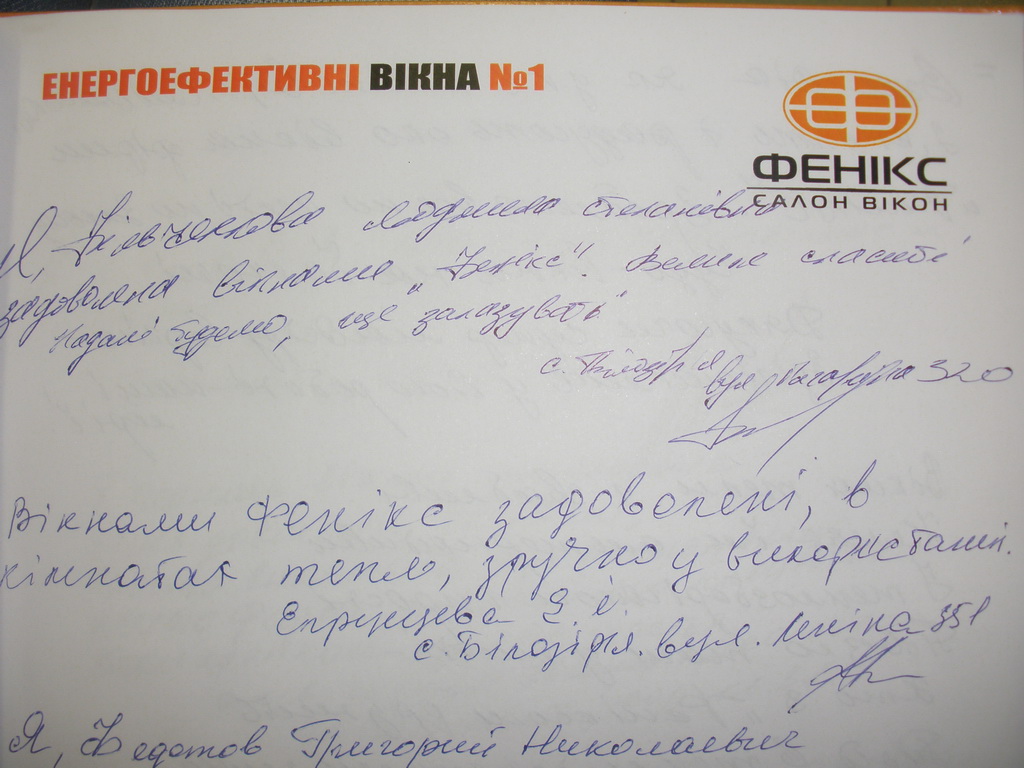 ЕНЕРГОЕФЕКТИВНІ ВІКНА №1
ФЕНІКС
САЛОН ВІКОН
Я, Людмила Степанівна
задоволена вікнами „Фенікс“. Велике спасибі
Надалі будемо, ще заказувать
с. Білозір'я вул. 320
Вікнами Фенікс задоволені, в
кімнатах тепло, зручно у використанні.
с. Білозір'я. вул. Леніна 351
Я, Федотов Григорий Николаевич